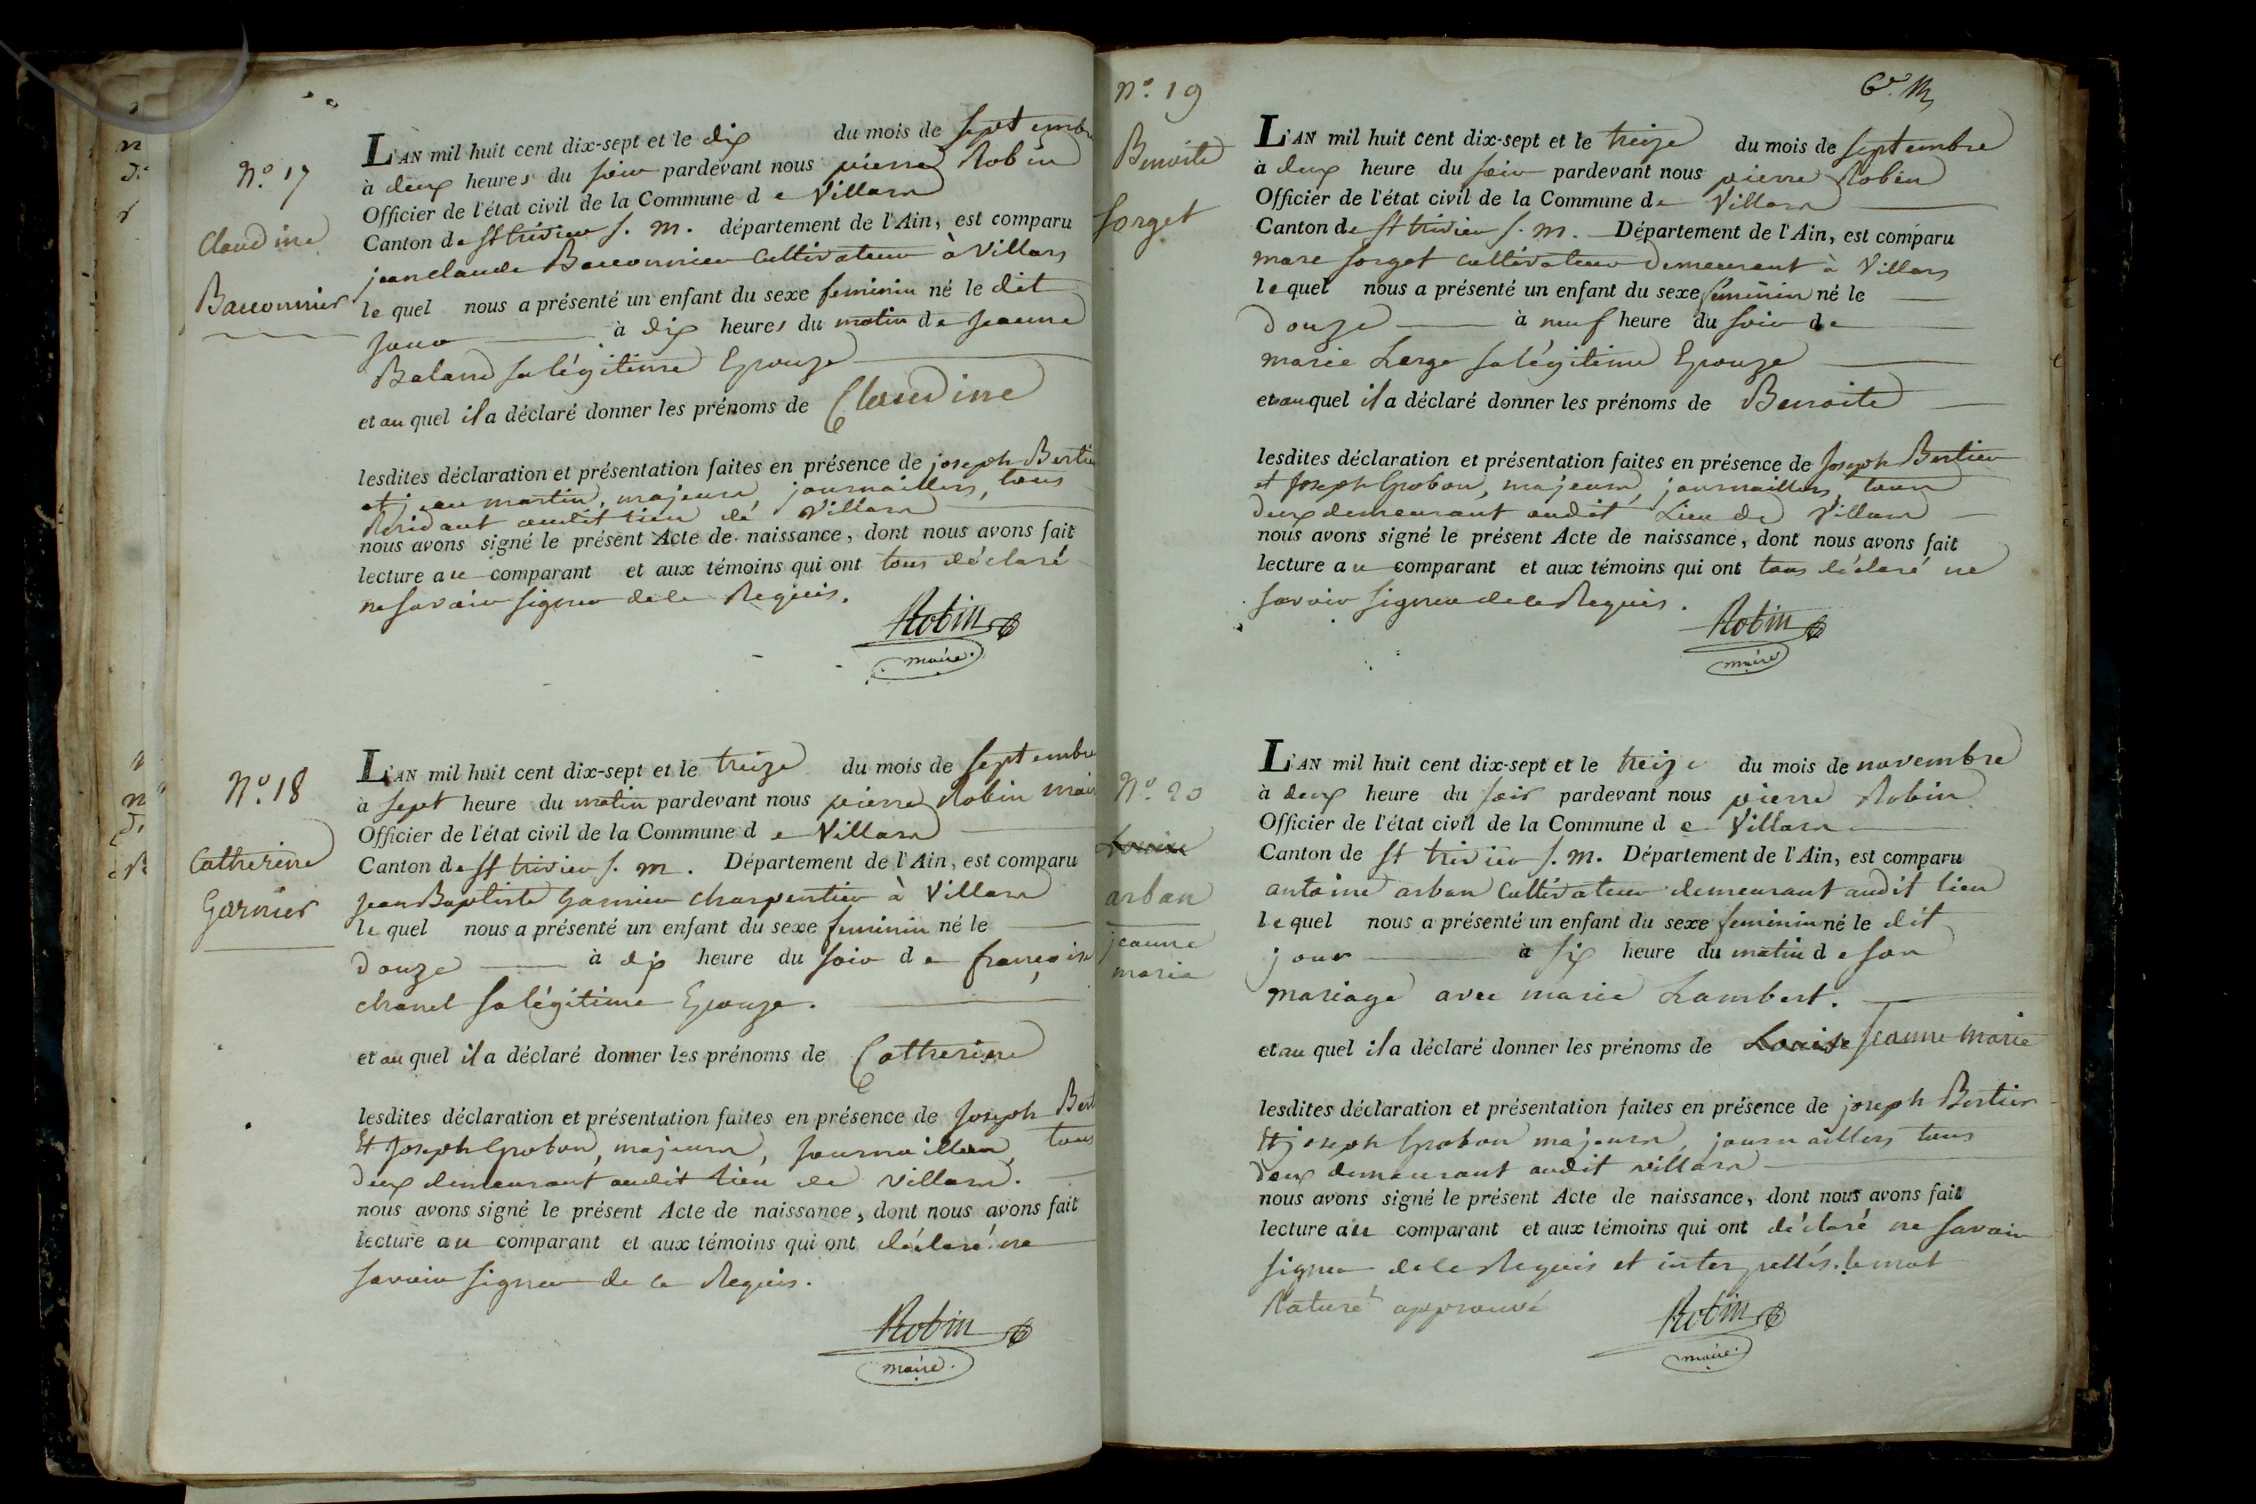 N.º 17
Claudine
Bacconnier
L'AN mil huit cent dix-sept et le dix du mois de septembre
à deux heures du soir pardevant nous pierre Robin
Officier de l'état civil de la Commune de Villars
Canton de St trivier s. m. département de l'Ain, est comparu
jean claude Bacconnier Cultivateur à Villars
lequel nous a présenté un enfant du sexe feminin né le dit
jour à dix heures du matin de jeanne
Baland sa légitime Epouze
et auquel il a déclaré donner les prénoms de Claudine
lesdites déclaration et présentation faites en présence de joseph Bertier
et jean martin, majeurs, journailliers, tous
Residant audit lieu de Villars
nous avons signé le présent Acte de naissance, dont nous avons fait
lecture au comparant et aux témoins qui ont tous déclaré
ne savoir signer de ce Requis.
Robin
maire.
N.º 18
Catherine
Garnier
L'AN mil huit cent dix-sept et le treize du mois de septembre
à sept heure du matin pardevant nous pierre Robin mair
Officier de l'état civil de la Commune de Villars
Canton de St trivier s. m. Département de l'Ain, est comparu
jean Baptiste Garnier charpentier à Villars
lequel nous a présenté un enfant du sexe feminin né le
douze à dix heure du soir de françoise
chanel sa légitime Epouze.
et auquel il a déclaré donner les prénoms de Catherine
lesdites déclaration et présentation faites en présence de Joseph Bert
Et Joseph Grobon, majeurs, Journailliers, tous
deux demeurant audit lieu de Villars.
nous avons signé le présent Acte de naissance, dont nous avons fait
lecture au comparant et aux témoins qui ont déclaré ne
savoir signer de ce Requis.
Robin
maire.
N.º 19
Benoite
forget
L'AN mil huit cent dix-sept et le treize du mois de septembre
à deux heure du soir pardevant nous pierre Robin
Officier de l'état civil de la Commune de Villars
Canton de St trivier s. m. Département de l'Ain, est comparu
marc forget cultivateur demeurant à Villars
lequel nous a présenté un enfant du sexe féminin né le
douze à neuf heure du soir de
marie Large sa légitime Epouze
et auquel il a déclaré donner les prénoms de Benoite
lesdites déclaration et présentation faites en présence de Joseph Bertier
et Joseph Grobon, majeurs, journailliers, tous
deux demeurant audit Lieu de Villars
nous avons signé le présent Acte de naissance, dont nous avons fait
lecture au comparant et aux témoins qui ont tous déclaré ne
savoir signer de ce Requis.
Robin
maire
N.º 20
Louise
arban
jeanne
marie
L'AN mil huit cent dix-sept et le treize du mois de novembre
à deux heure du soir pardevant nous pierre Robin
Officier de l'état civil de la Commune de Villars
Canton de St trivier s. m. Département de l'Ain, est comparu
antoine arban Cultivateur demeurant audit lieu
lequel nous a présenté un enfant du sexe feminin né le dit
jour à six heure du matin de son
mariage avec marie Lambert.
et au quel il a déclaré donner les prénoms de Louise Jeanne marie
lesdites déclaration et présentation faites en présence de joseph Bertier
Et joseph Grobon majeurs, journailliers tous
deux demeurant audit villars
nous avons signé le présent Acte de naissance, dont nous avons fait
lecture au comparant et aux témoins qui ont déclaré ne savoir
signer de ce Requis et interpellés. le mot
Raturé approuvé
Robin
maire.